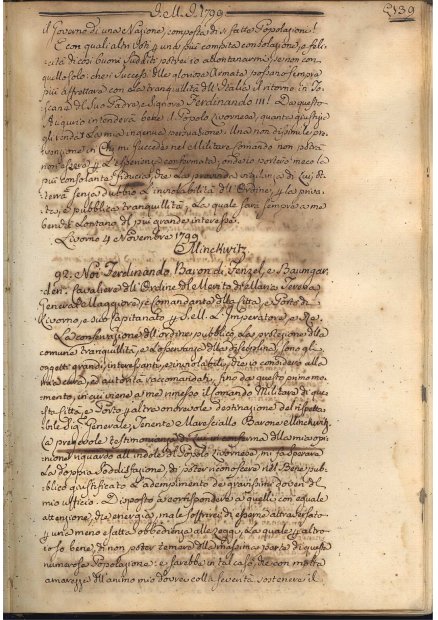 I. M. I. 1799
539
il Governo di una Nazione, composta di sì fatte Popolazione!
E con quali altri voti, una più compita consolazione, e felicità
di così buoni Sudditi potrei io allontanarmi, se non con
quello solo, che i successi delle gloriose Armate possano sempre
più affrettare con la tranquillità dell'Italia il ritorno in Toscana
del suo Padre, e Signore Ferdinando III! Da questo
Augurio intenderà bene il Popolo Livornese, quanta giustizia
gli renda la mia ingenua persuasione. Una non dissimile prevenzione
in Chi mi succede nel Militare Comando non potrà
non essere l'esperienza confermata; onde io porto meco la
più consolante fiducia, che la provvida vigilanza di Lui
senza dubbio l'inviolabilità dell'Ordine, e la privata,
e pubblica tranquillità, la quale sarà sempre a me
benché lontano di più grande interesse.
Livorno 4 Novembre 1799
Klinckwitz
92. Noi Ferdinando Baron di Fenzel, e Baumgarden,
Cavaliere dell'Ordine del Merito di Maria Teresa
General Maggiore, e Comandante della Città, e Porto di
Livorno, e suo Capitanato S. M. L'Imperatore, e Re.
La conservazione dell'ordine pubblico, la protezione della
comune tranquillità, e l'osservanza della disciplina sono gli
oggetti grandi, interessanti, e inviolabili, che io considero alla
mia cura, ed autorità raccomandati, fino da questo primo momento,
in cui viene a me commesso il Comando Militare di questa
Città, e Porto, altre onorevole destinazione del rispettabile
Sig. Generale, Tenente Maresciallo Barone Klinckwitz.
La pregevole testimonianza di Lui in conferma della mia opinione
riguardo all'indole del Popolo Livornese, mi fa sperare
la doppia sodisfazione, di poter riconoscere nel Bene pubblico
giustificato l'adempimento dei gravissimi doveri del
mio ufficio. Disposto a corrispondere a quelli con eguale
attenzione, che energia, male soffrirei di esserne attraversato
una meno esatta obbedienza alle Leggi, la quale
io so bene, di non poter temere della massima parte di questa
numerosa Popolazione, e sarebbe in tal caso, che con molta
amarezza dell'animo mio dovrei colla severità sostenere il